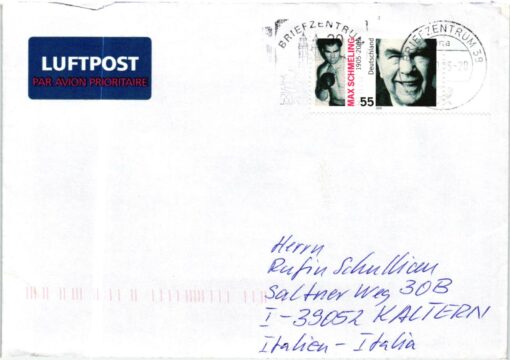 LUFTPOST
PAR AVION PRIORITAIRE
BRIEFZENTRUM
BRIEFZENTRUM 39
MAX SCHMELING
1905-2005
55
Deutschland
Herrn
Rufin Schullian
Saltner Weg 30B
I-39052 KALTERN
Italien-Italia